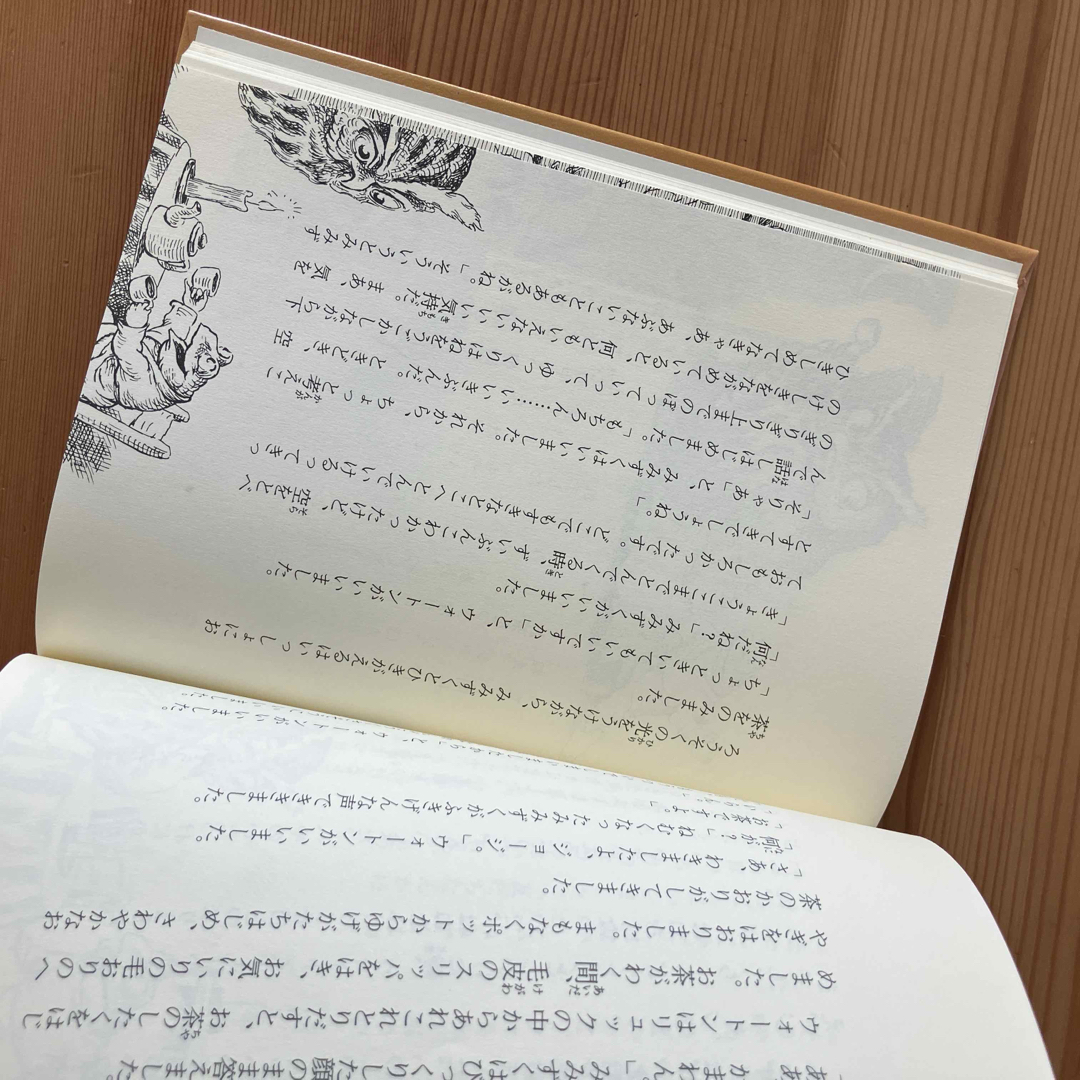 「ああ、かまわん」みみずくはびっくりした顔のまま答えました。
ウォートンはリュックの中からあれこれとりだすと、お茶のしたくをはじ
めました。お茶がわく間、毛皮のスリッパをはき、お気にいりの毛おりのへ
やぎをはおりました。まもなくポットからゆげがたちはじめ、さわやかなお
茶のかおりがしてきました。
「さあ、わきましたよ、ジョージ。」ウォートンがいいました。
「何が？」ねむくなったみみずくがふきげんな声でききました。
「お茶ですよ。」
ウォートンがいいました。
ろうそくの光をうけながら、みみずくとひきがえるはいっしょにお
茶をのみました。
「ちょっときいてもいいですか」と、ウォートンがいいました。
「何だね？」みみずくがいいました。
「きょうここまでとんでくる時、ずいぶんこわかったけど、空をとべ
ておもしろかったです。どこでもすきなとこへとんでいけるってきっ
とすてきでしょうね。」
「そりゃあ」と、みみずくはいいました。それから、ちょっと考えこ
んで話しはじめました。「もちろん……いいきぶんだ。ときどき、空
のぎりぎり上までのぼっていって、ゆっくりはねをうごかしながら下
のけしきをながめていると、何ともいえないいい気持だ。まあ、気を
ひきしめてなきゃあ、あぶないこともあるがね。」そういうとみみず